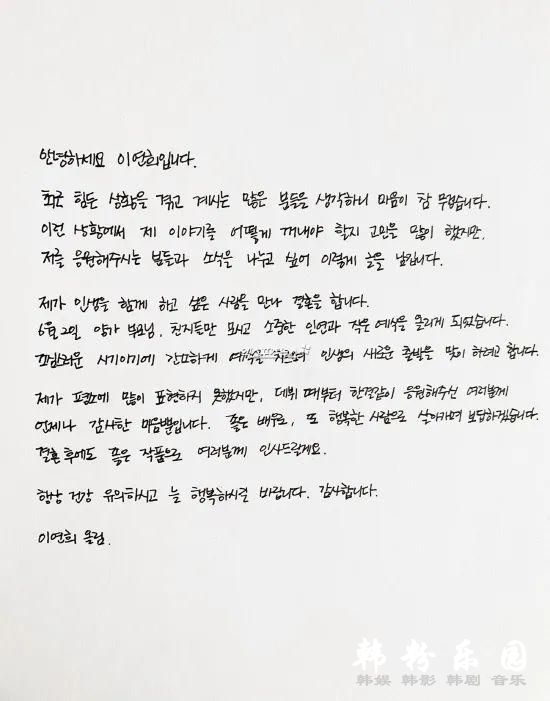 안녕하세요 이연희입니다.
최근 힘든 상황을 겪고 계시는 많은 분들을 생각하니 마음이 참 무겁습니다.
이런 상황에서 제 이야기를 어떻게 꺼내야 할지 고민을 많이 했지만,
저를 응원해주시는 분들과 소식을 나누고 싶어 이렇게 글을 남깁니다.
제가 인생을 함께 하고 싶은 사람을 만나 결혼을 합니다.
6월 2일 양가 부모님, 친지들만 모시고 소중한 인연과 작은 예식을 올리게 되었습니다.
조심스러운 시기이기에 간소하게 예식을 치르며 인생의 새로운 출발을 맞이 하려고 합니다.
제가 평소에 많이 표현하지 못했지만, 데뷔 때부터 한결같이 응원해주신 여러분께
언제나 감사한 마음뿐입니다. 좋은 배우로, 또 행복한 사람으로 살아가며 보답하겠습니다.
결혼 후에도 좋은 작품으로 여러분께 인사드릴게요.
항상 건강 유의하시고 늘 행복하시길 바랍니다. 감사합니다.
이연희 올림.
韩粉乐园
韩娱 韩影 韩剧 音乐